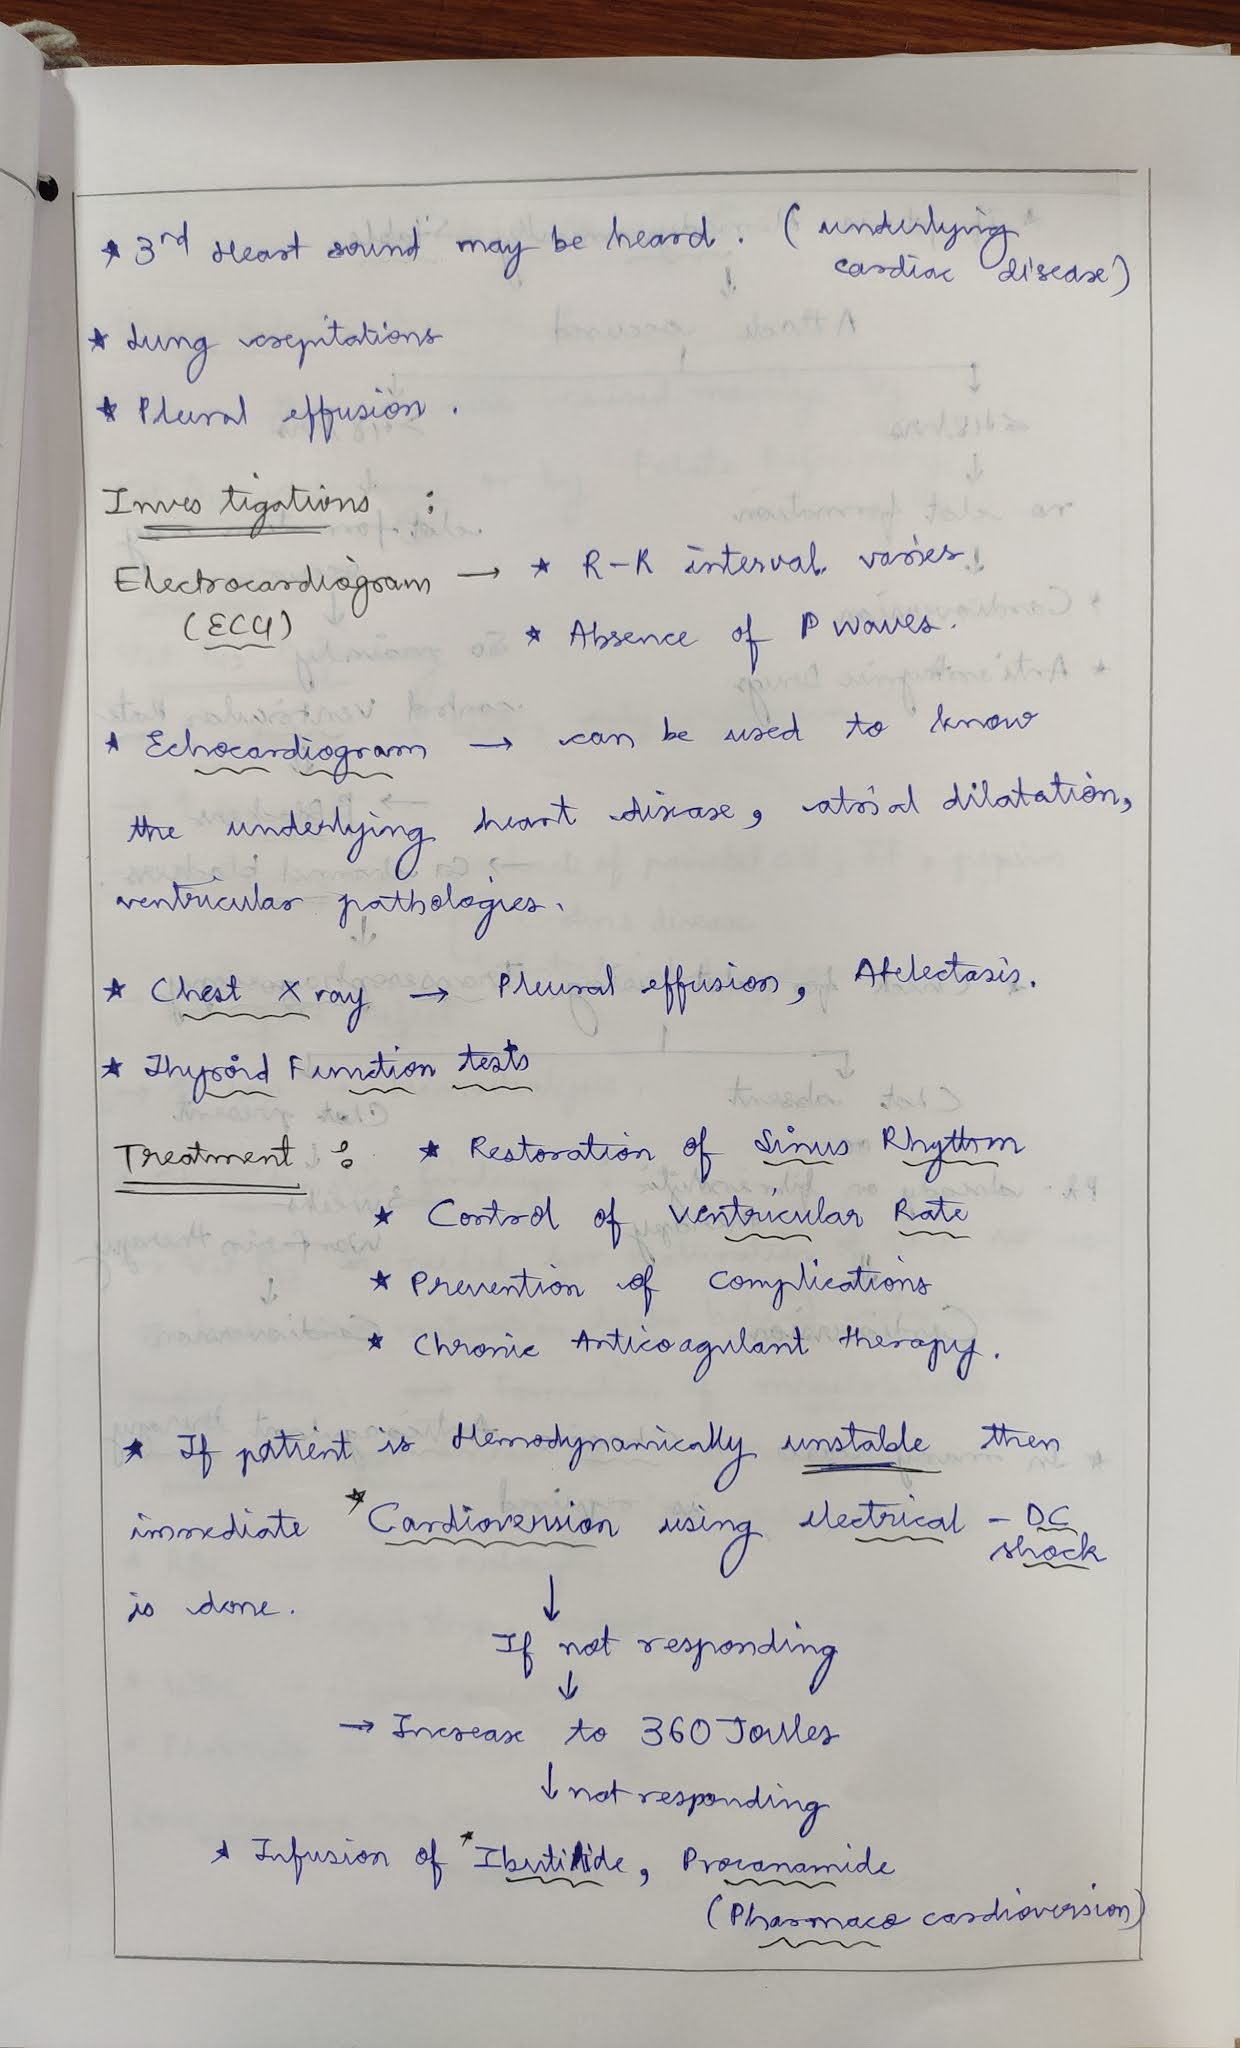 ★ 3rd Heart sound may be heard. (underlying
cardiac disease)
★ Lung crepitations
★ Plural effusion.
Investigations :
Electrocardiogram → ★ R-R interval varies.
(ECG) ★ Absence of P waves.
★ Echocardiogram → can be used to know
the underlying heart disease, atrial dilatation,
ventricular pathologies.
★ Chest X ray → Pleural effusion, Atelectasis.
★ Thyroid Function tests
Treatment : ★ Restoration of Sinus Rhythm
★ Control of Ventricular Rate
★ Prevention of complications
★ Chronic Anticoagulant therapy.
★ If patient is Hemodynamically unstable then
immediate ★Cardioversion using electrical - DC
shock
is done. ↓
If not responding
↓
→ Increase to 360 Joules
↓ not responding
★ Infusion of ★Ibutilide, Procanamide
(Pharmaco cardioversion)